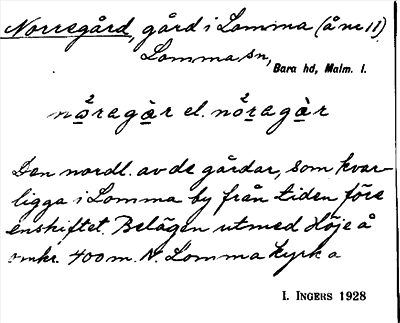 Norregård, gård i Lomma (å nr 11)
Lomma sn,
Bara hd, Malm. l.
nǫ²ragą̀r el. nǫ̈²ragą̀r
Den nordl. av de gårdar, som kvar-
ligga i Lomma by från tiden före
enskiftet. Belägen utmed Höje å
omkr. 400 m. N. Lomma kyrka
I. INGERS 1928